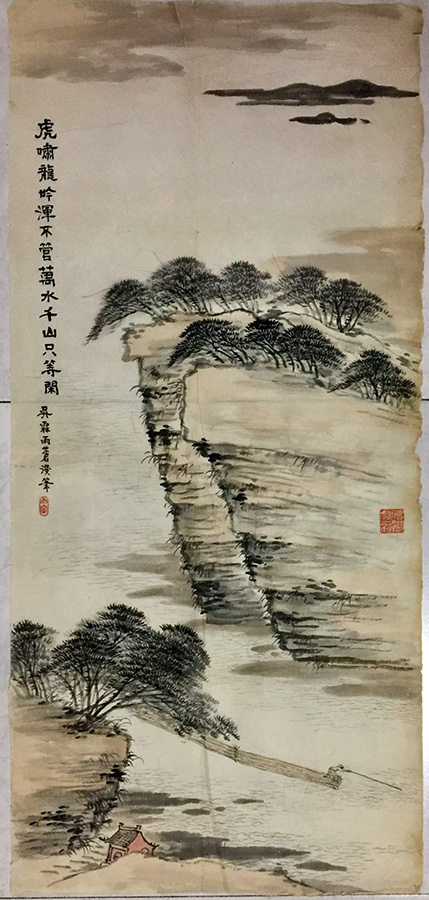 虎嘯龍吟渾不管萬水千山只等閑
吳霖雨蒼漢筆